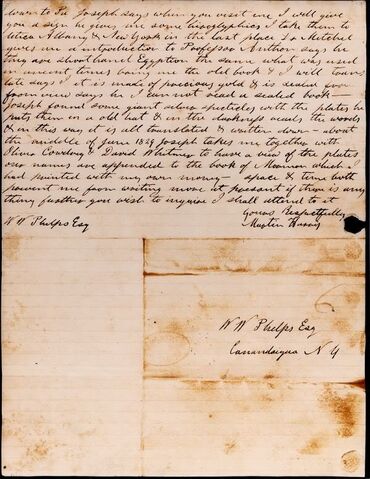 down to Pa Joseph says when you visit me I will give
you a sign he gives me some hiroglyphics I take them to
Utica Albany & New York in the last place Dr Mitchel
gives me a introduction to Professor Anthon says he
they are short hand Egyption the same what was used
in ancient times bring me the old book & I will trans-
late says I it is made of precious gold & is sealed from
view says he I can not read a sealed book
Joseph found some giant silver specticles with the plates he
puts them in a old hat & in the darkness reads the words
& in this way it is all translated & written down about
the middle of June 1829 Joseph takes me together with
Oliver Cowdery & David Whitmer to have a view of the plates
our names are appended to the book of Mormon which I
had printed with my own money space & time both
prevent me from writing more at presant if there is any
thing further you wish to inquire I shall attend to it
Yours Respectfully
W W Phelps Esq
Martin Harris
W W Phelps Esq
Canandaigua N Y